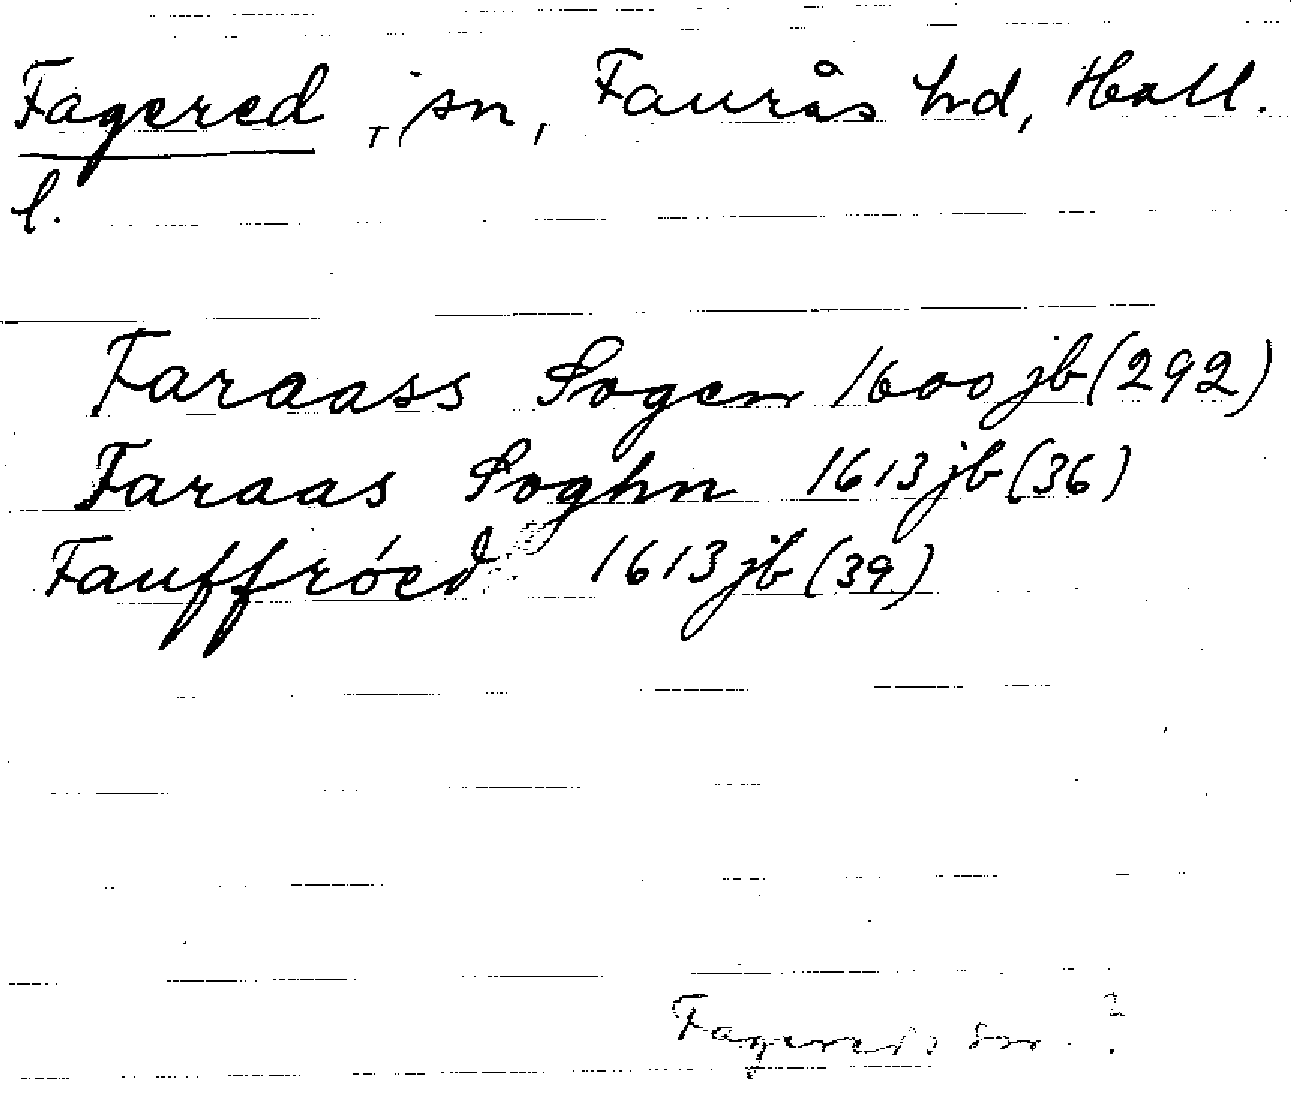 Fagered, sn, Faurås hd, Hall.
l.
Faraass Sogen 1600 jb (292)
Faraas Soghn 1613 jb (36)
Fauffróed 1613 jb (39)
Fagereds sn. ?